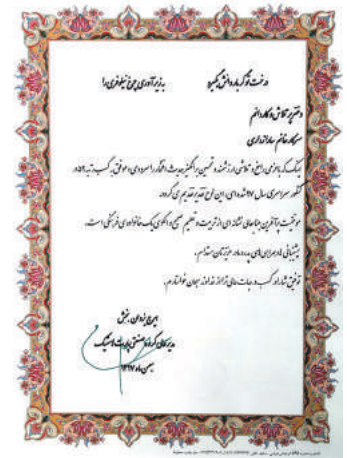 درخت تو گر بار دانش بگیرد به زیر آوری چرخ نیلوفری را
دختر پر تلاش و کاردانم
سرکار خانم سارا نداری
اینک که با عزمی راسخ و تلاشی ارزشمند و تحسین برانگیز حدیث افتخار را سرودی و موفق به کسب رتبه در
کنکور سراسری سال ۹۷ شده‌ای، این لوح تقدیر تقدیم می گردد.
موفقیت و آفرین جنابعالی نشانه ای از تربیت و تعلیم صحیح و الگوی یک خانواده‌ی فرهنگی است.
پشتیبانی و همراهی های پدر و مادر عزیزتان مستدام.
توفیق شما را در کسب درجات عالی تر از خداوند سبحان خواستارم.
ایرج یزدان بخش
مدیر عامل گروه صنعتی پلاستیک
بهمن ماه ۱۳۹۷